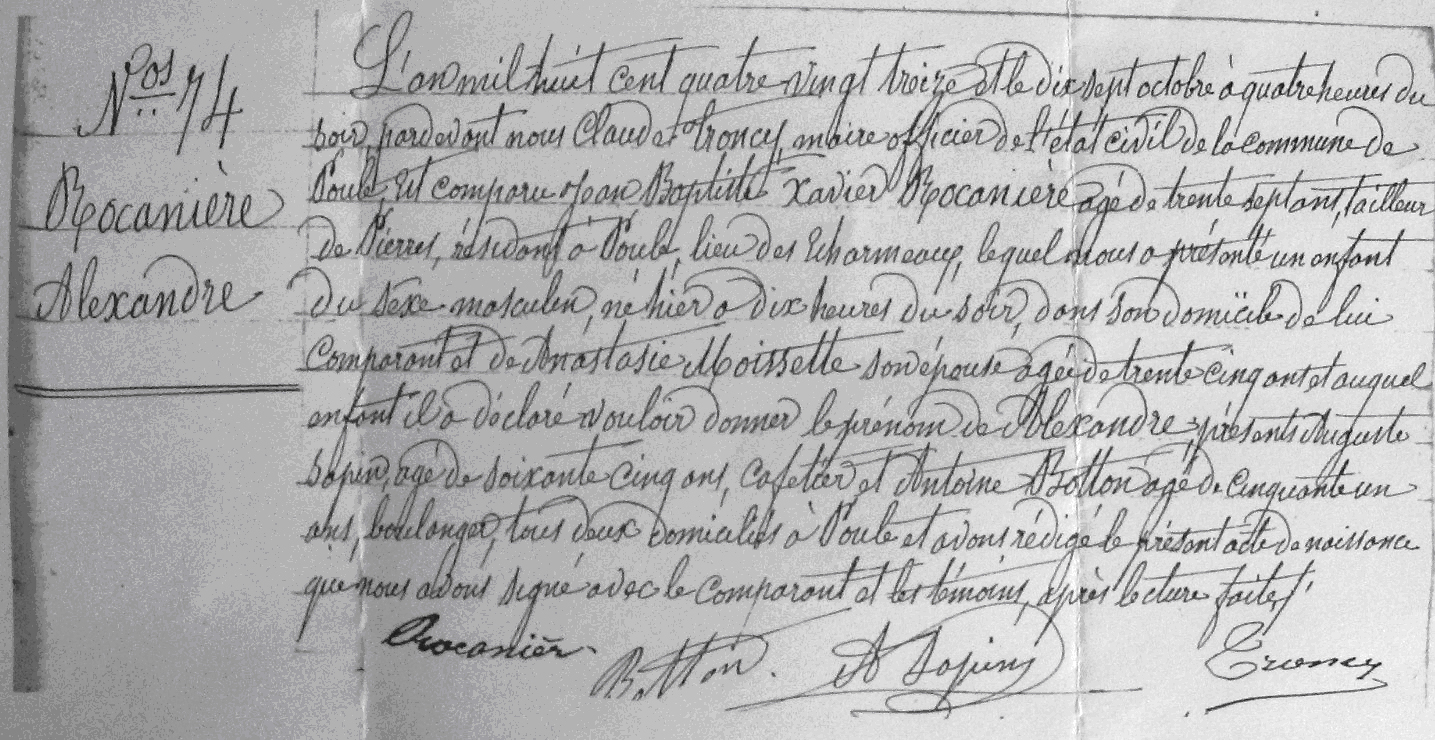 Nos 74
Rocanière
Alexandre
L'an mil huit cent quatre vingt treize et le dix sept octobre à quatre heures du
soir, pardevant nous Claude Troncy, maire officier de l'état civil de la commune de
Poule, Est comparu Jean Baptiste Xavier Rocanière agé de trente sept ans, tailleur
de Pierres, résidant à Poule, lieu des Echarmeaux, lequel nous a présenté un enfant
du sexe masculin, né hier à dix heures du soir, dans son domicile de lui
Comparant et de Anastasie Moissette son épouse agée de trente cinq ans et auquel
enfant il a déclaré vouloir donner le prénom de Alexandre, présents Auguste
Sapin, agé de soixante cinq ans, Cafetier et Antoine Botton agé de cinquante un
ans, boulanger, tous deux domiciliés à Poule et avons rédigé le présent acte de naissance
que nous avons signé avec le comparant et les témoins, après lecture faite,
Rocanièr
Botton
A Sapin
Troncy